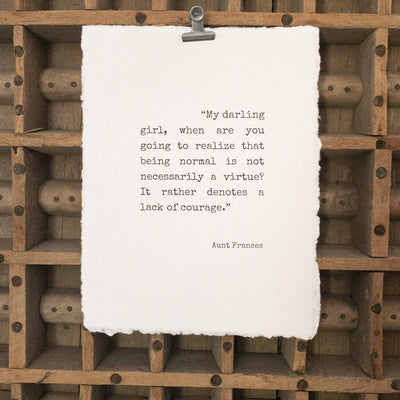 “My darling
girl, when are you
going to realize that
being normal is not
necessarily a virtue?
It rather denotes a
lack of courage.”
Aunt Frances